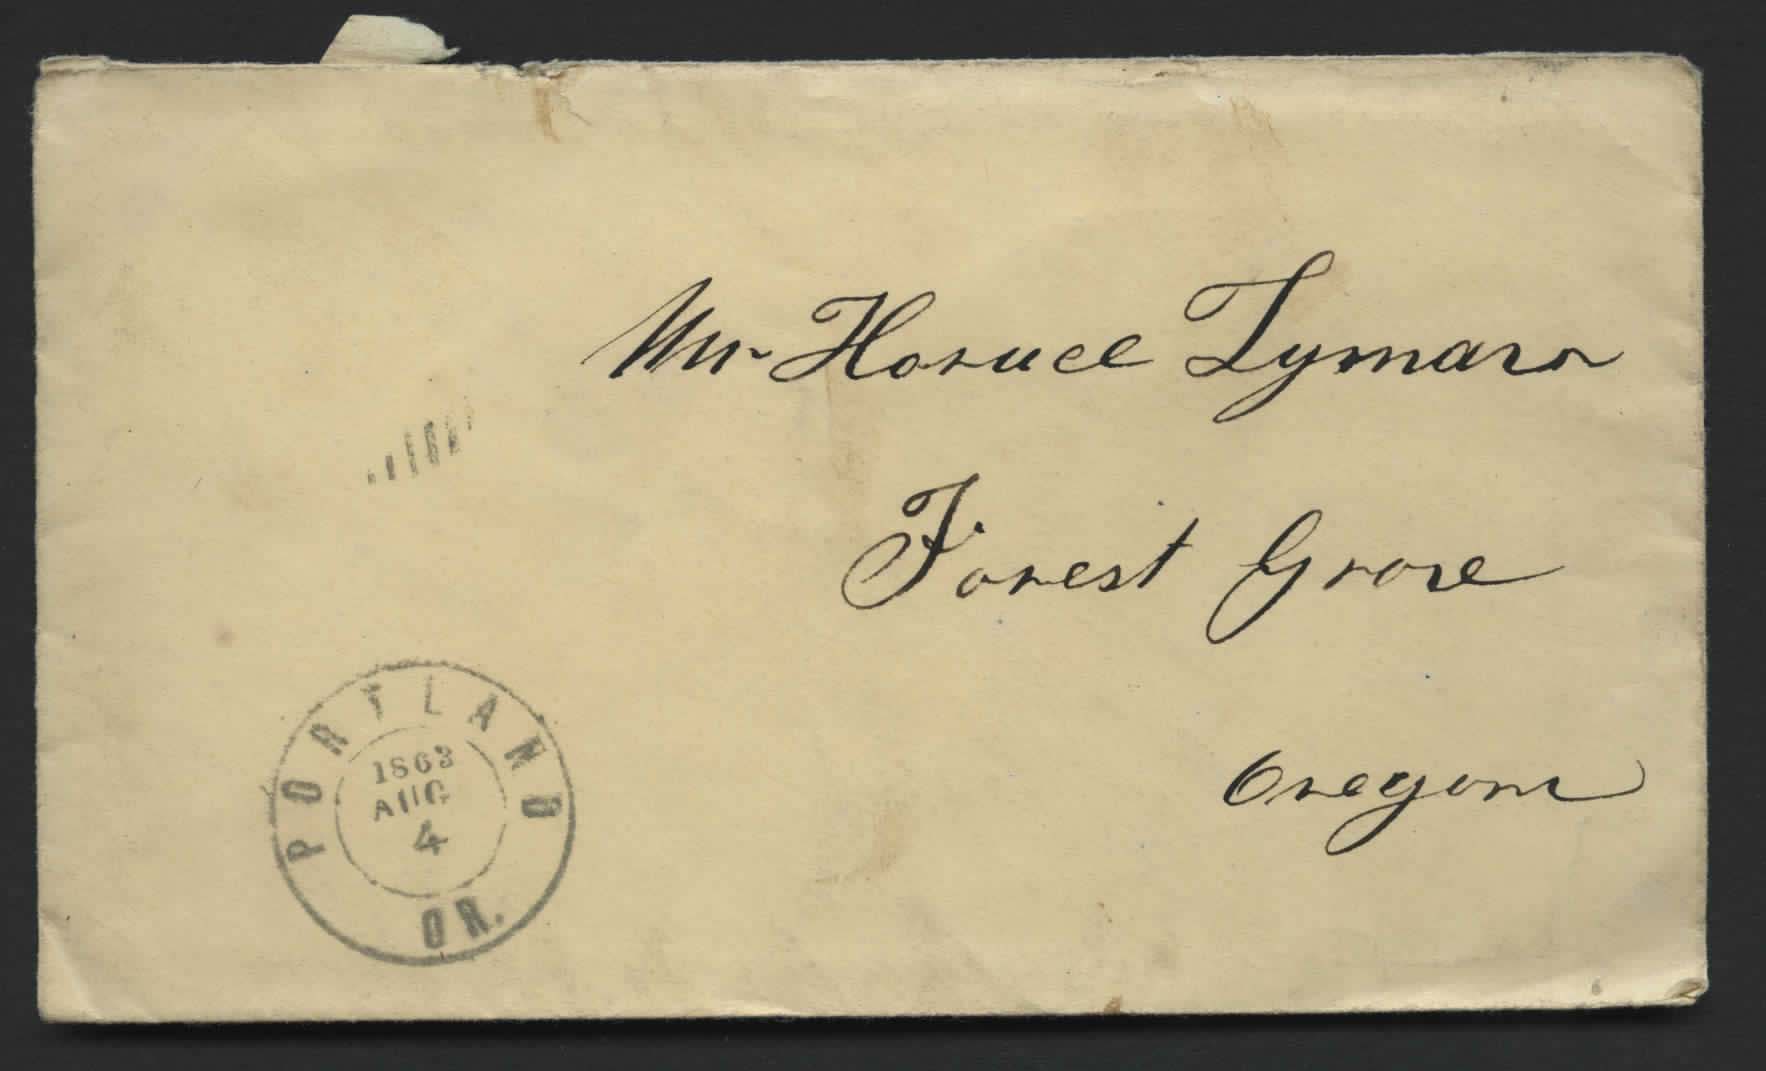 Mr Horace Lyman
Forest Grove
Oregon
PORTLAND
1863
AUG
4
OR.